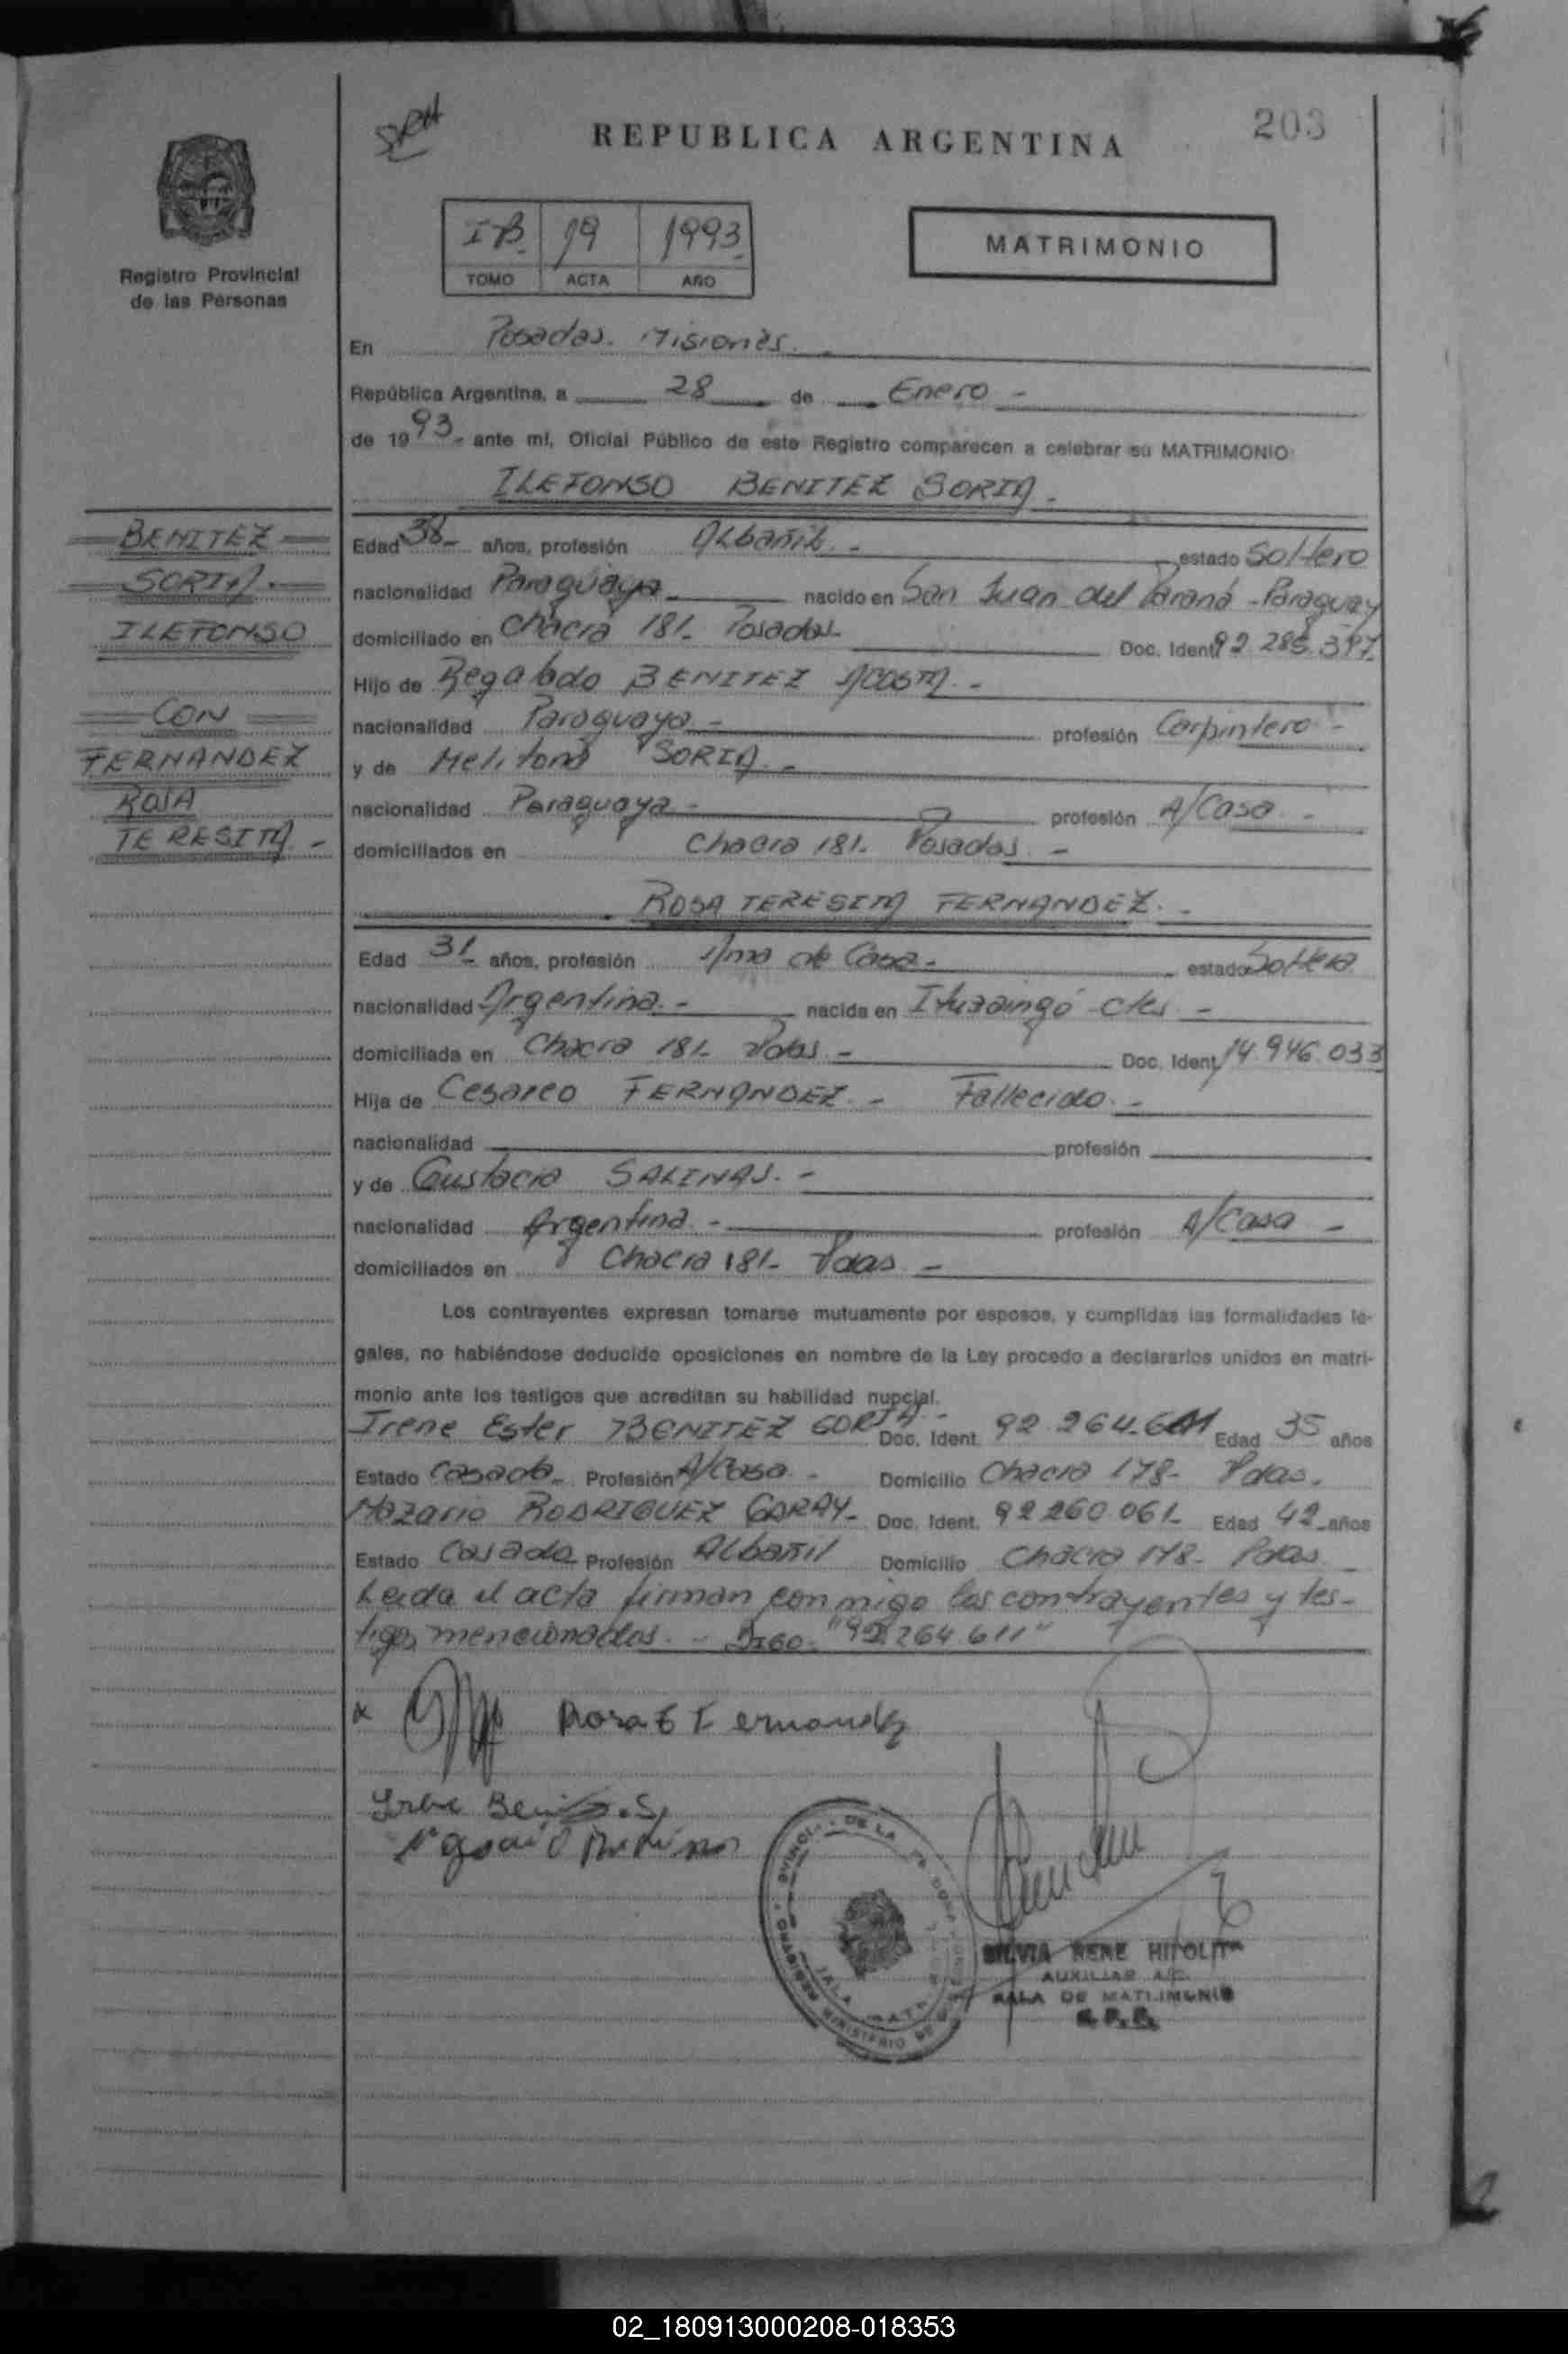 SRH
REPUBLICA ARGENTINA
203
Registro Provincial
de las Personas
IB. 19 1993
TOMO ACTA AÑO
MATRIMONIO
En Posadas. Misiones.
República Argentina, a 28 de Enero -
de 1993- ante mí, Oficial Público de este Registro comparecen a celebrar su MATRIMONIO:
ILEFONSO BENITEZ SORIA -
BENITEZ
SORIA.
ILEFONSO
CON
FERNANDEZ
ROSA
TERESITA -
Edad 38- años, profesión Albañil. - estado Soltero
nacionalidad Paraguaya nacido en San Juan del Paraná - Paraguay
domiciliado en Chacra 181- Posadas Doc. Ident. 92.285.397
Hijo de Regalado BENITEZ ACOSTA. -
nacionalidad Paraguaya - profesión Carpintero -
y de Melitona SORIA. -
nacionalidad Paraguaya - profesión A/Casa -
domiciliados en Chacra 181- Posadas. -
ROSA TERESITA FERNANDEZ. -
Edad 31- años, profesión Ama de Casa - estado Soltera
nacionalidad Argentina. - nacida en Ituzaingó - Ctes. -
domiciliada en Chacra 181- Pdas. - Doc. Ident. 14.946.033
Hija de Cesareo FERNANDEZ. - Fallecido. -
nacionalidad profesión
y de Eustacia SALINAS. -
nacionalidad Argentina. - profesión A/Casa -
domiciliados en Chacra 181- Pdas. -
Los contrayentes expresan tomarse mutuamente por esposos, y cumplidas las formalidades le-
gales, no habiéndose deducido oposiciones en nombre de la Ley procedo a declararlos unidos en matri-
monio ante los testigos que acreditan su habilidad nupcial.
Irene Ester BENITEZ SORIA - Doc. Ident. 92.264.611 Edad 35 años
Estado Casada - Profesión A/Casa - Domicilio Chacra 178- Pdas.
Nazario RODRIGUEZ GARAY- Doc. Ident. 92.260.061- Edad 42- años
Estado Casado Profesión Albañil Domicilio Chacra 178- Pdas
Leida el acta firman conmigo los contrayentes y tes-
tigos mencionados. - Digo: "92.264.611"
x Rosa T Fernandez
Irene Beni S.
SILVIA RENE HIPOLITA
AUXILIAR A/C.
SALA DE MATRIMONIO
02_180913000208-018353